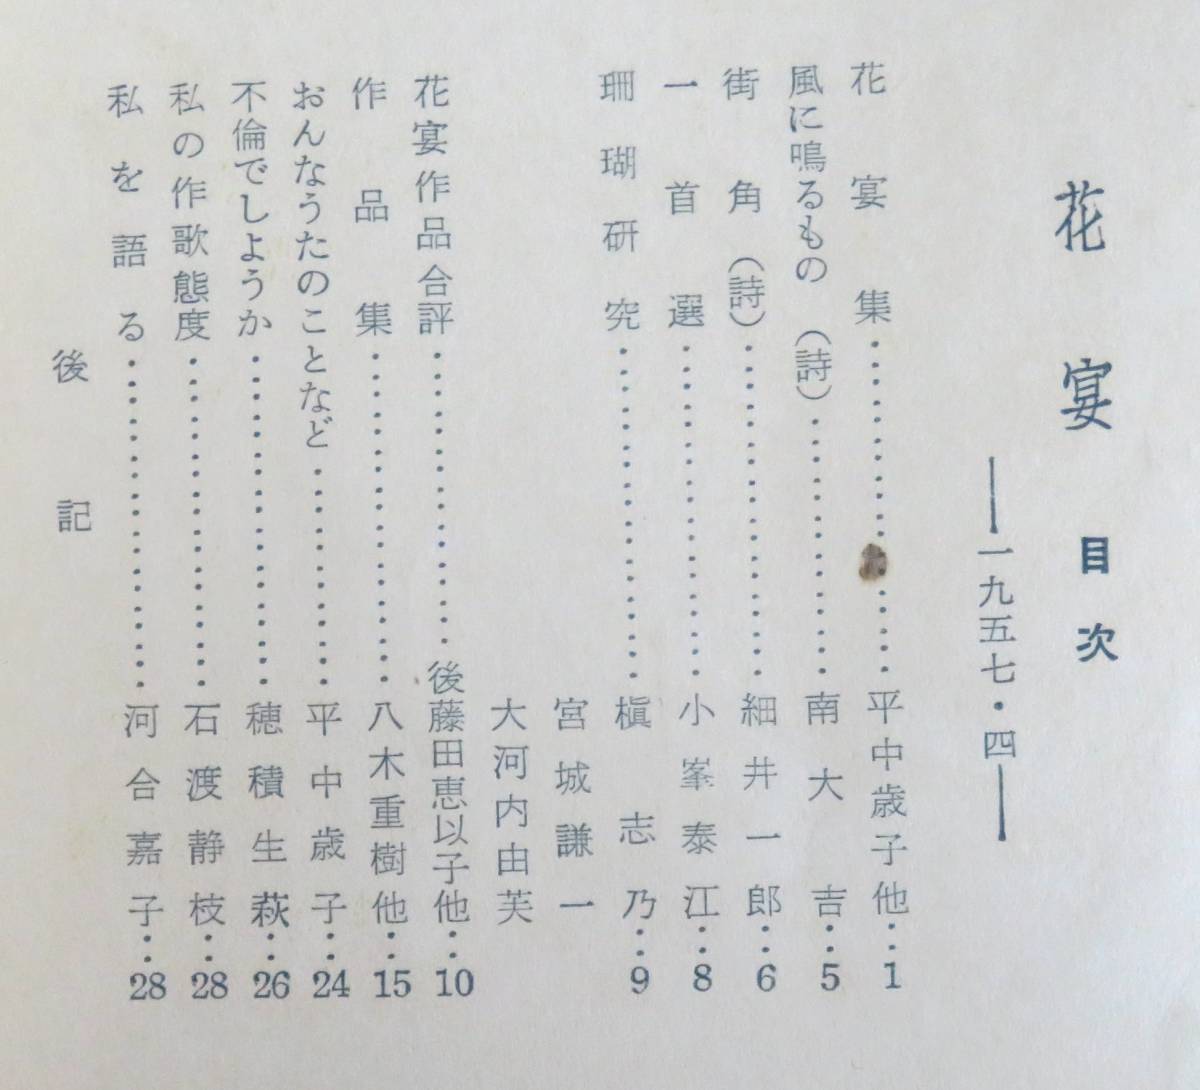 花宴 目次
――一九五七・四――
花宴集……………平中歳子他…1
風に鳴るもの（詩）……………南大吉…5
街角（詩）……………細井一郎…6
一首選……………小峯泰江…8
珊瑚研究……………槇志乃…9
宮城謙一
大河内由芙
花宴作品合評……………後藤田恵以子他…10
作品集……………八木重樹他…15
おんなうたのことなど……………平中歳子…24
不倫でしようか……………穂積生萩…26
私の作歌態度……………石渡静枝…28
私を語る……………河合嘉子…28
後記